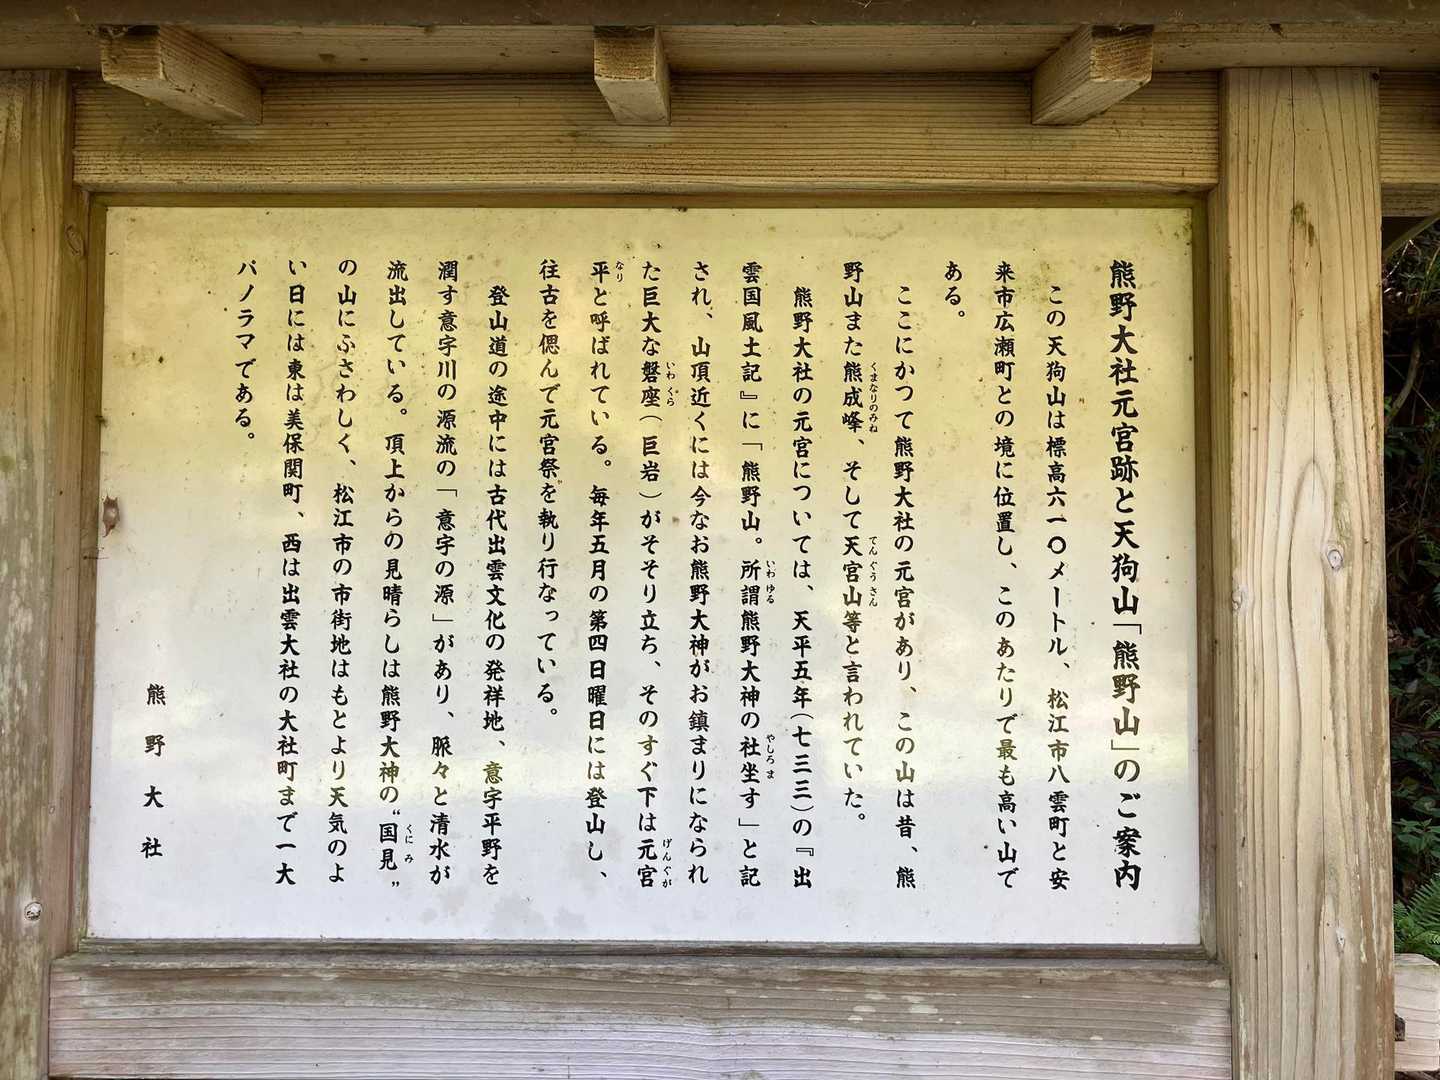 熊野大社元宮跡と天狗山「熊野山」のご案内
この天狗山は標高六一〇メートル、松江市八雲町と安
来市広瀬町との境に位置し、このあたりで最も高い山で
ある。
ここにかつて熊野大社の元宮があり、この山は昔、熊
野山また熊成峰、そして天宮山等と言われていた。
くまなりのみね
てんぐうさん
熊野大社の元宮については、天平五年(七三三)の『出
雲国風土記』に「熊野山。所謂熊野大神の社坐す」と記
いわゆる
やしろま
され、山頂近くには今なお熊野大神がお鎮まりになられ
た巨大な磐座(巨岩)がそそり立ち、そのすぐ下は元宮
いわくら
げんぐが
平と呼ばれている。毎年五月の第四日曜日には登山し、
なり
往古を偲んで元宮祭を執り行なっている。
登山道の途中には古代出雲文化の発祥地、意宇平野を
潤す意宇川の源流の「意宇の源」があり、脈々と清水が
流出している。頂上からの見晴らしは熊野大神の“国見”
くにみ
の山にふさわしく、松江市の市街地はもとより天気のよ
い日には東は美保関町、西は出雲大社の大社町まで一大
パノラマである。
熊野大社